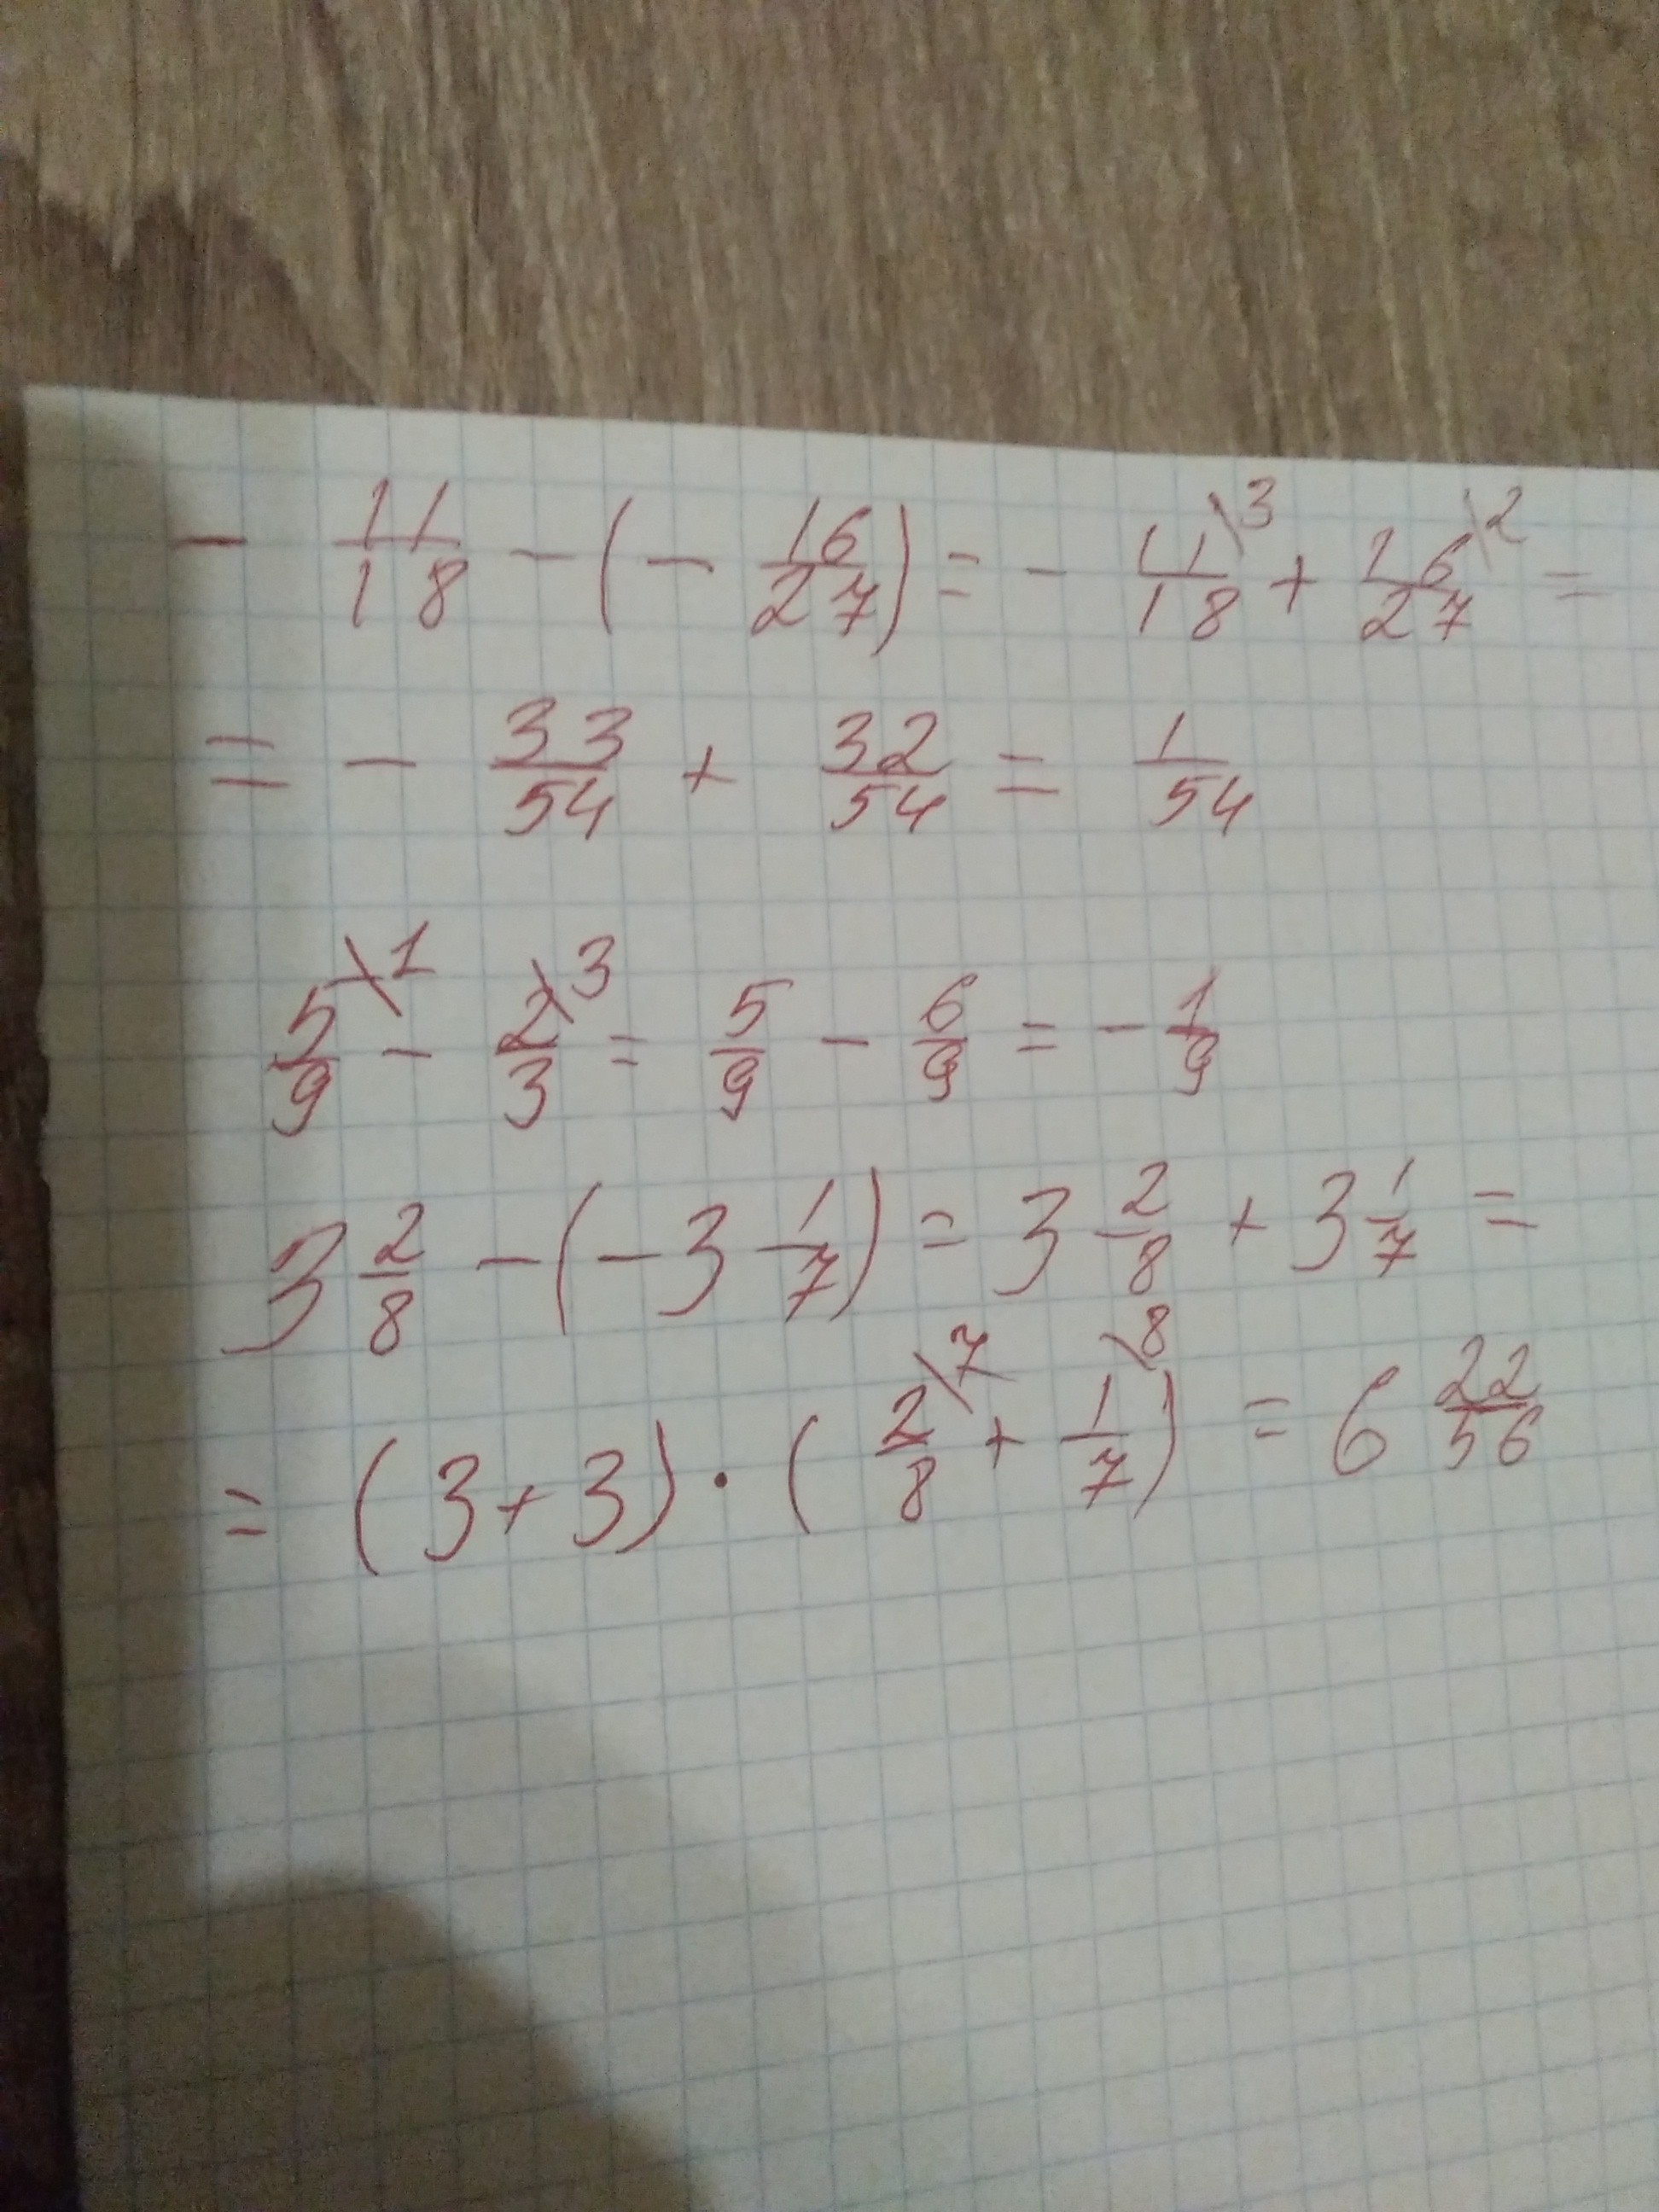 - 11/18 - (- 16/27) = - 11\3/18 + 16\2/27 =
= - 33/54 + 32/54 = 1/54
5\1/9 - 2\3/3 = 5/9 - 6/9 = - 1/9
3 2/8 - (-3 1/7) = 3 2/8 + 3 1/7 =
= (3+3) · (2\7/8 + 1\8/7) = 6 22/56